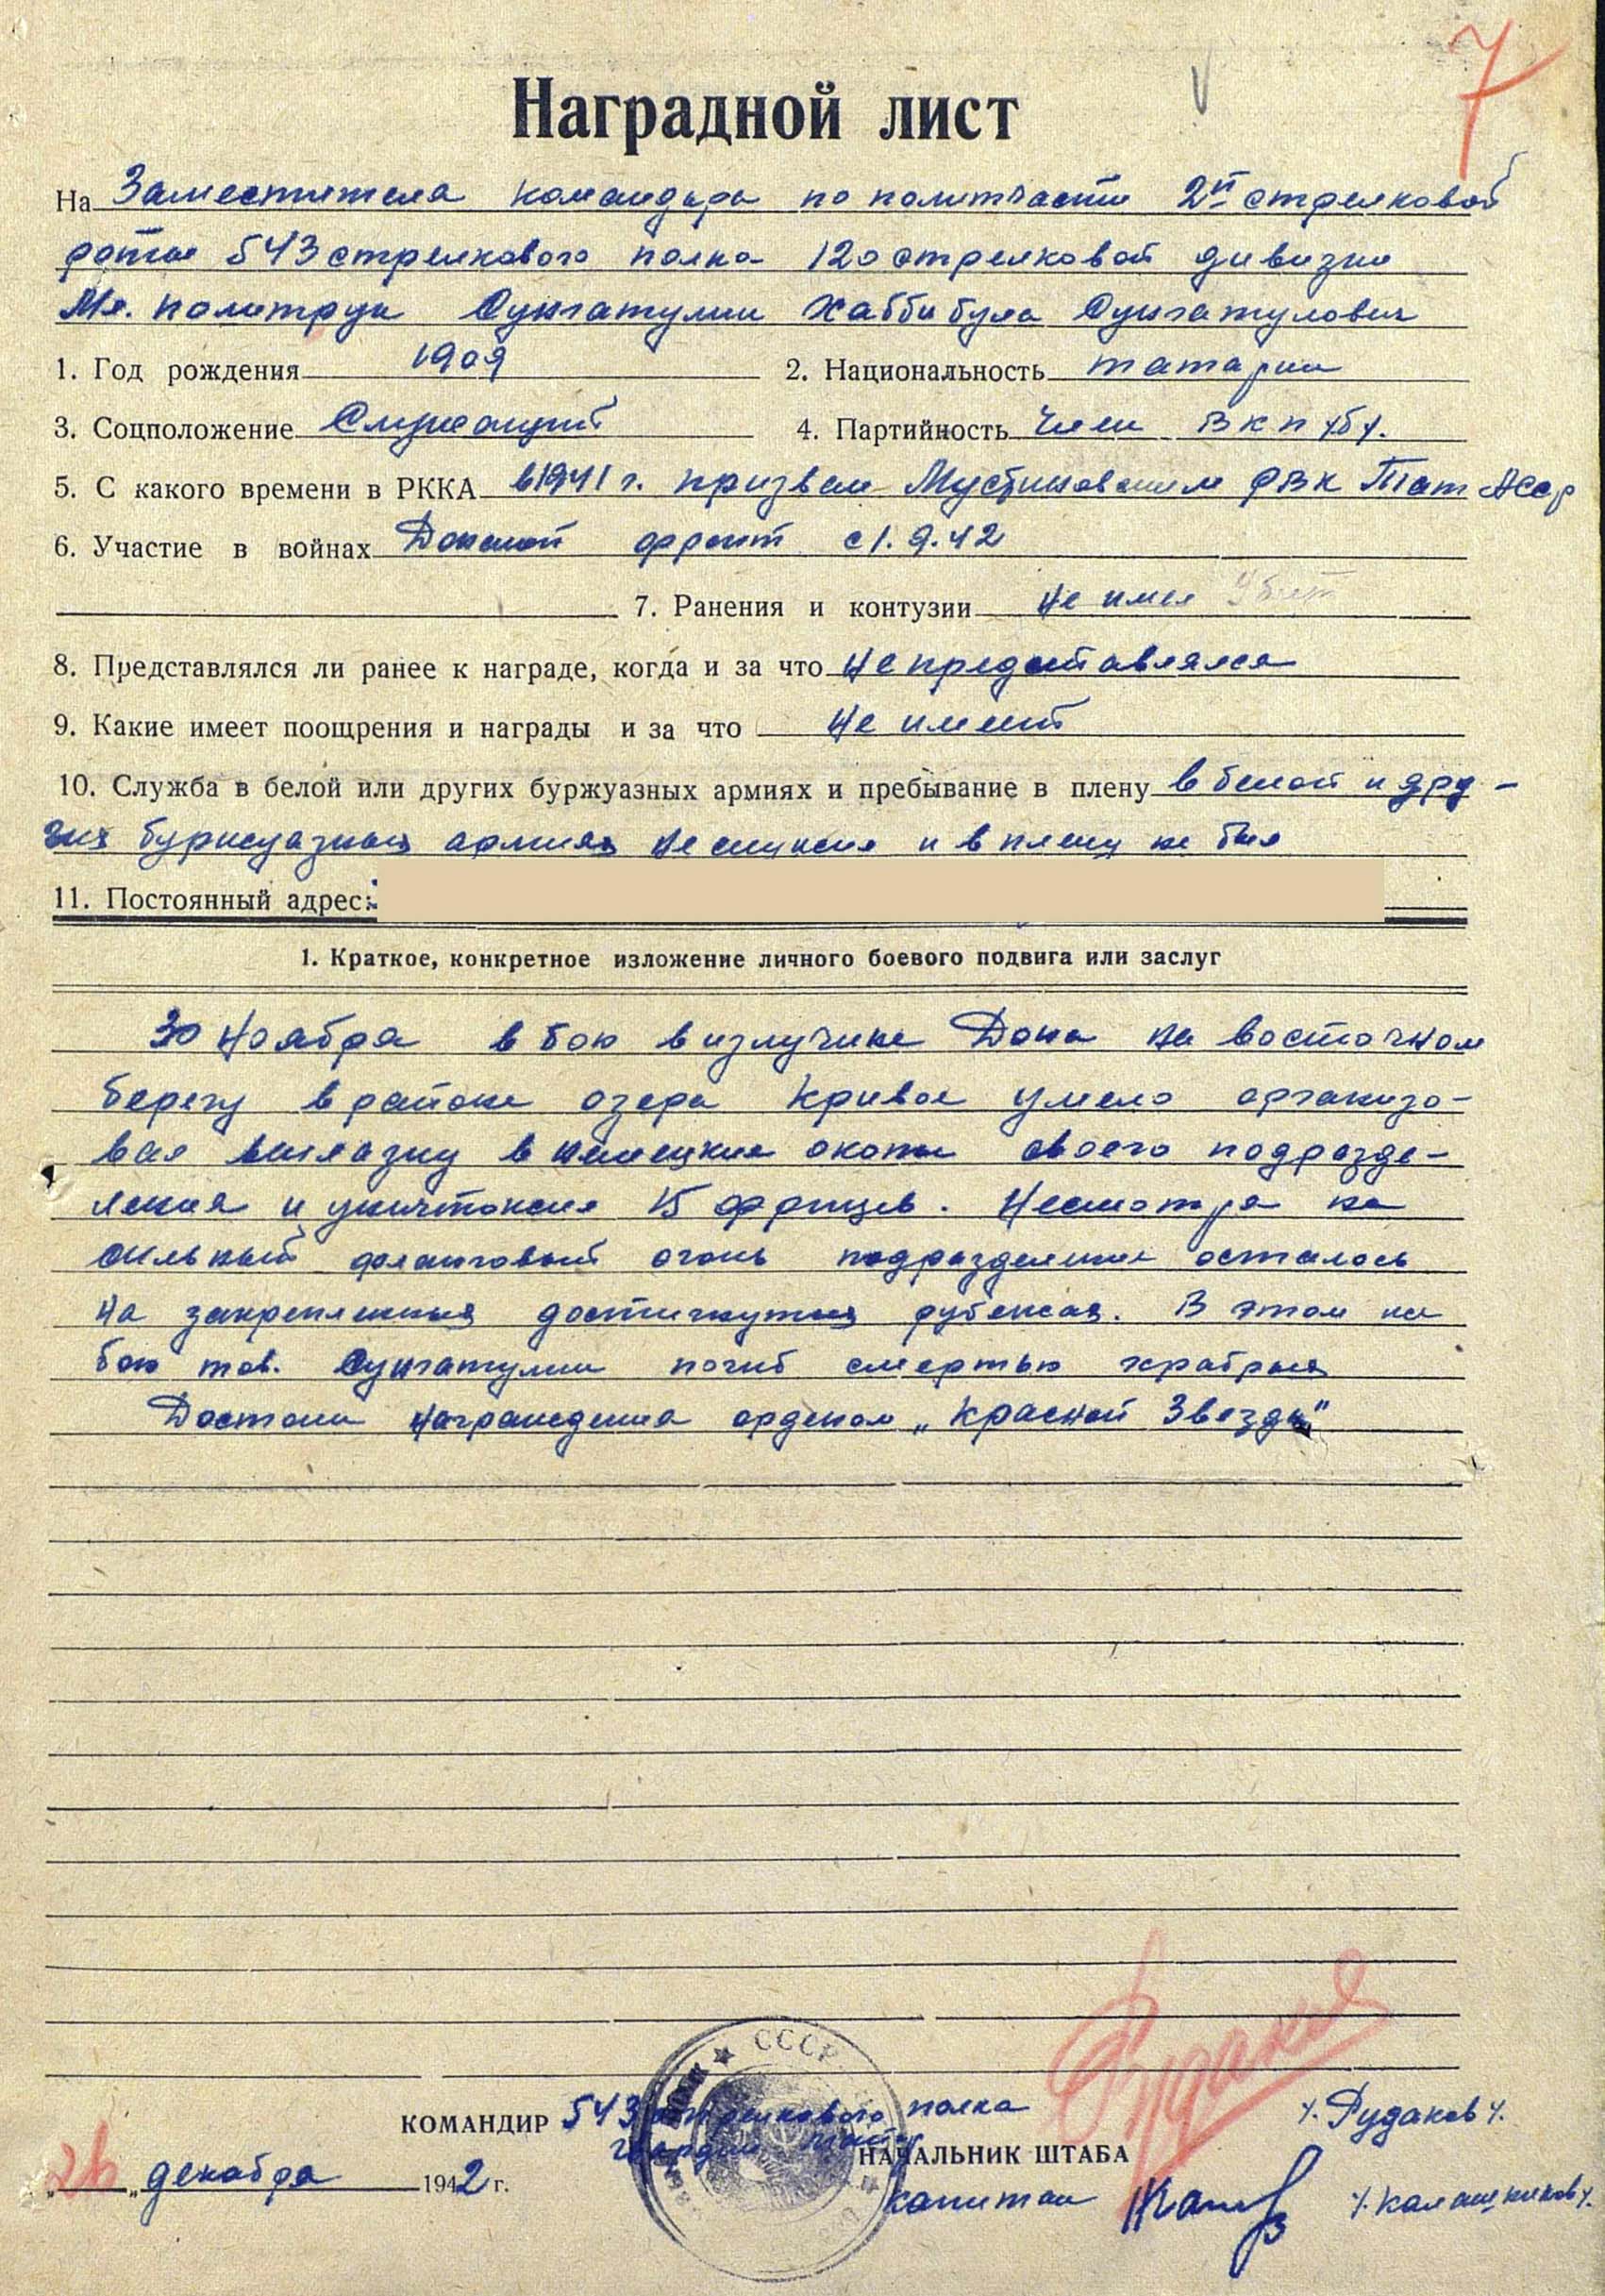 7
Наградной лист
На Заместителя командира по политчасти 2й стрелковой
роты 543 стрелкового полка 120 стрелковой дивизии
Мл. политрук Сунгатулин Хаббибула Сунгатулович
1. Год рождения 1909 2. Национальность татарин
3. Соцположение Служащий 4. Партийность Член ВКП(б).
5. С какого времени в РККА в 1941 г. призван РВК Тат АССР
6. Участие в войнах Донской фронт с 1.9.42
7. Ранения и контузии не имел Убит
8. Представлялся ли ранее к награде, когда и за что не представлялся
9. Какие имеет поощрения и награды и за что не имеет
10. Служба в белой или других буржуазных армиях и пребывание в плену в белой и дру-
гих буржуазных армиях не служил и в плену не был
11. Постоянный адрес:
1. Краткое, конкретное изложение личного боевого подвига или заслуг
30 ноября в бою в излучине Дона на восточном
берегу в районе озера Кривое умело организо-
вал вылазку в немецкие окопы своего подразде-
ления и уничтожил 15 фрицев. Несмотря на
сильный фланговый огонь подразделение осталось
на закрепленных достигнутых рубежах. В этом же
бою тов. Сунгатулин погиб смертью храбрых
Достоин награждения орденом „Красной Звезды"
СССР
КОМАНДИР 543 стрелкового полка (Рудаков).
гвардии майор НАЧАЛЬНИК ШТАБА
„26" декабря 1942 г.
капитан (Калашников).